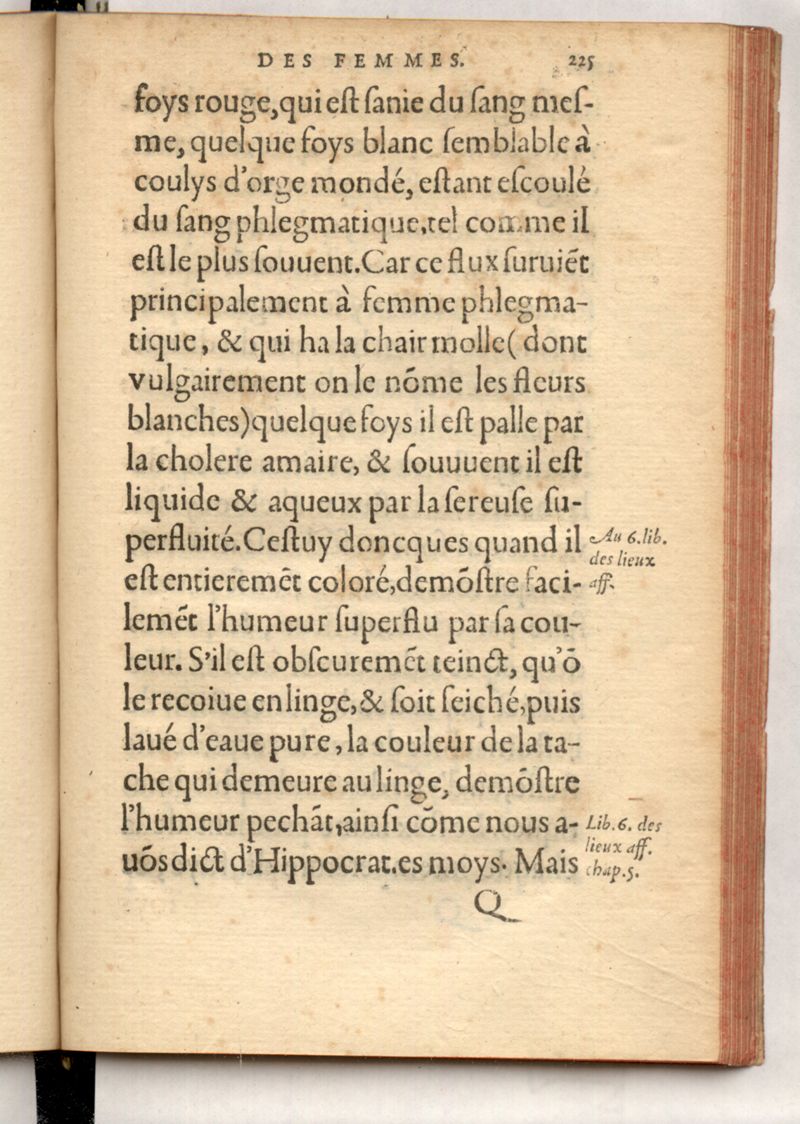 DES FEMMES. 225
foys rouge,qui eſt ſanie du ſang meſ-
me, quelque foys blanc ſemblable à
coulys d'orge mondé, eſtant eſcoulé
du ſang phlegmatique,tel comme il
eſt le plus ſouuent.Car ce flux ſuruiẽt
principalement à femme phlegma-
tique, & qui ha la chair molle( dont
vulgairement on le nõme les fleurs
blanches)quelque foys il eſt palle par
la cholere amaire, & ſouuuent il eſt
liquide & aqueux par la ſereuſe ſu-
perfluité.Ceſtuy doncques quand il
eſt entieremẽt coloré,demõſtre faci-
lemẽt l'humeur ſuperflu par ſa cou-
leur. S'il eſt obſcuremẽt teinct, qu'õ
le recoiue en linge,& ſoit ſeiché,puis
laué d'eaue pure, la couleur de la ta-
che qui demeure au linge, demõſtre
l'humeur pechãt,ainſi cõme nous a-
uõs dict d'Hippocrat.es moys. Mais
Au 6.lib.
des lieux
aff.
Lib.6. des
lieux aff.
chap.5.
Q